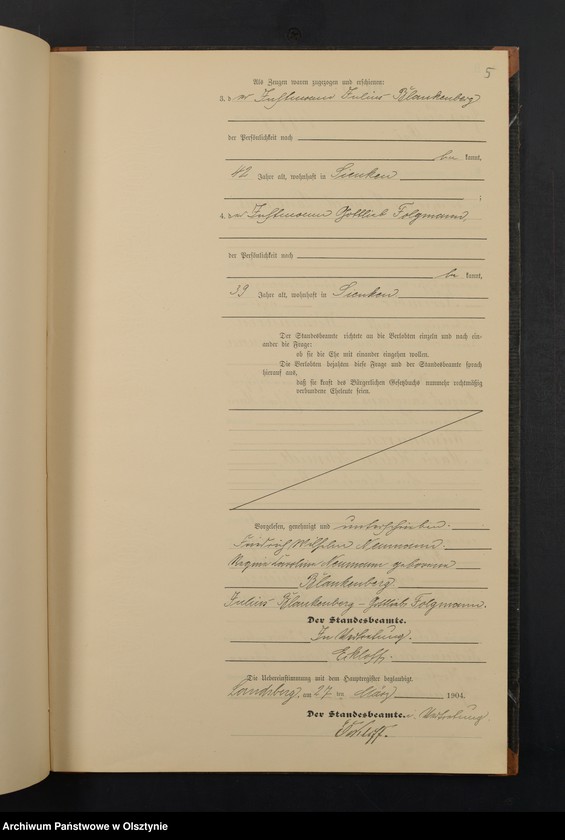 5
Als Zeugen waren zugezogen und erschienen:
3. der Instmann Julius Blankenberg
der Persönlichkeit nach
be kannt,
42 Jahre alt, wohnhaft in Sienken
;
4. der Instmann Gottlieb Folgmann,
der Persönlichkeit nach
be kannt,
39 Jahre alt, wohnhaft in Sienken
Der Standesbeamte richtete an die Verlobten einzeln und nach ein-
ander die Frage:
ob sie die Ehe mit einander eingehen wollen.
Die Verlobten bejahten diese Frage und der Standesbeamte sprach
hierauf aus,
daß sie kraft des Bürgerlichen Gesetzbuchs nunmehr rechtmäßig
verbundene Eheleute seien.
Vorgelesen, genehmigt und unterschrieben.
Friedrich Wilhelm Neumann
Karoline Neumann geborene
Blankenberg
Julius Blankenberg - Gottlieb Folgmann.
Der Standesbeamte.
In Vertretung.
Die Uebereinstimmung mit dem Hauptregister beglaubigt.
Landsberg, am 27 ten März 1904.
Der Standesbeamte. Vertretung.
Archiwum Państwowe w Olsztynie